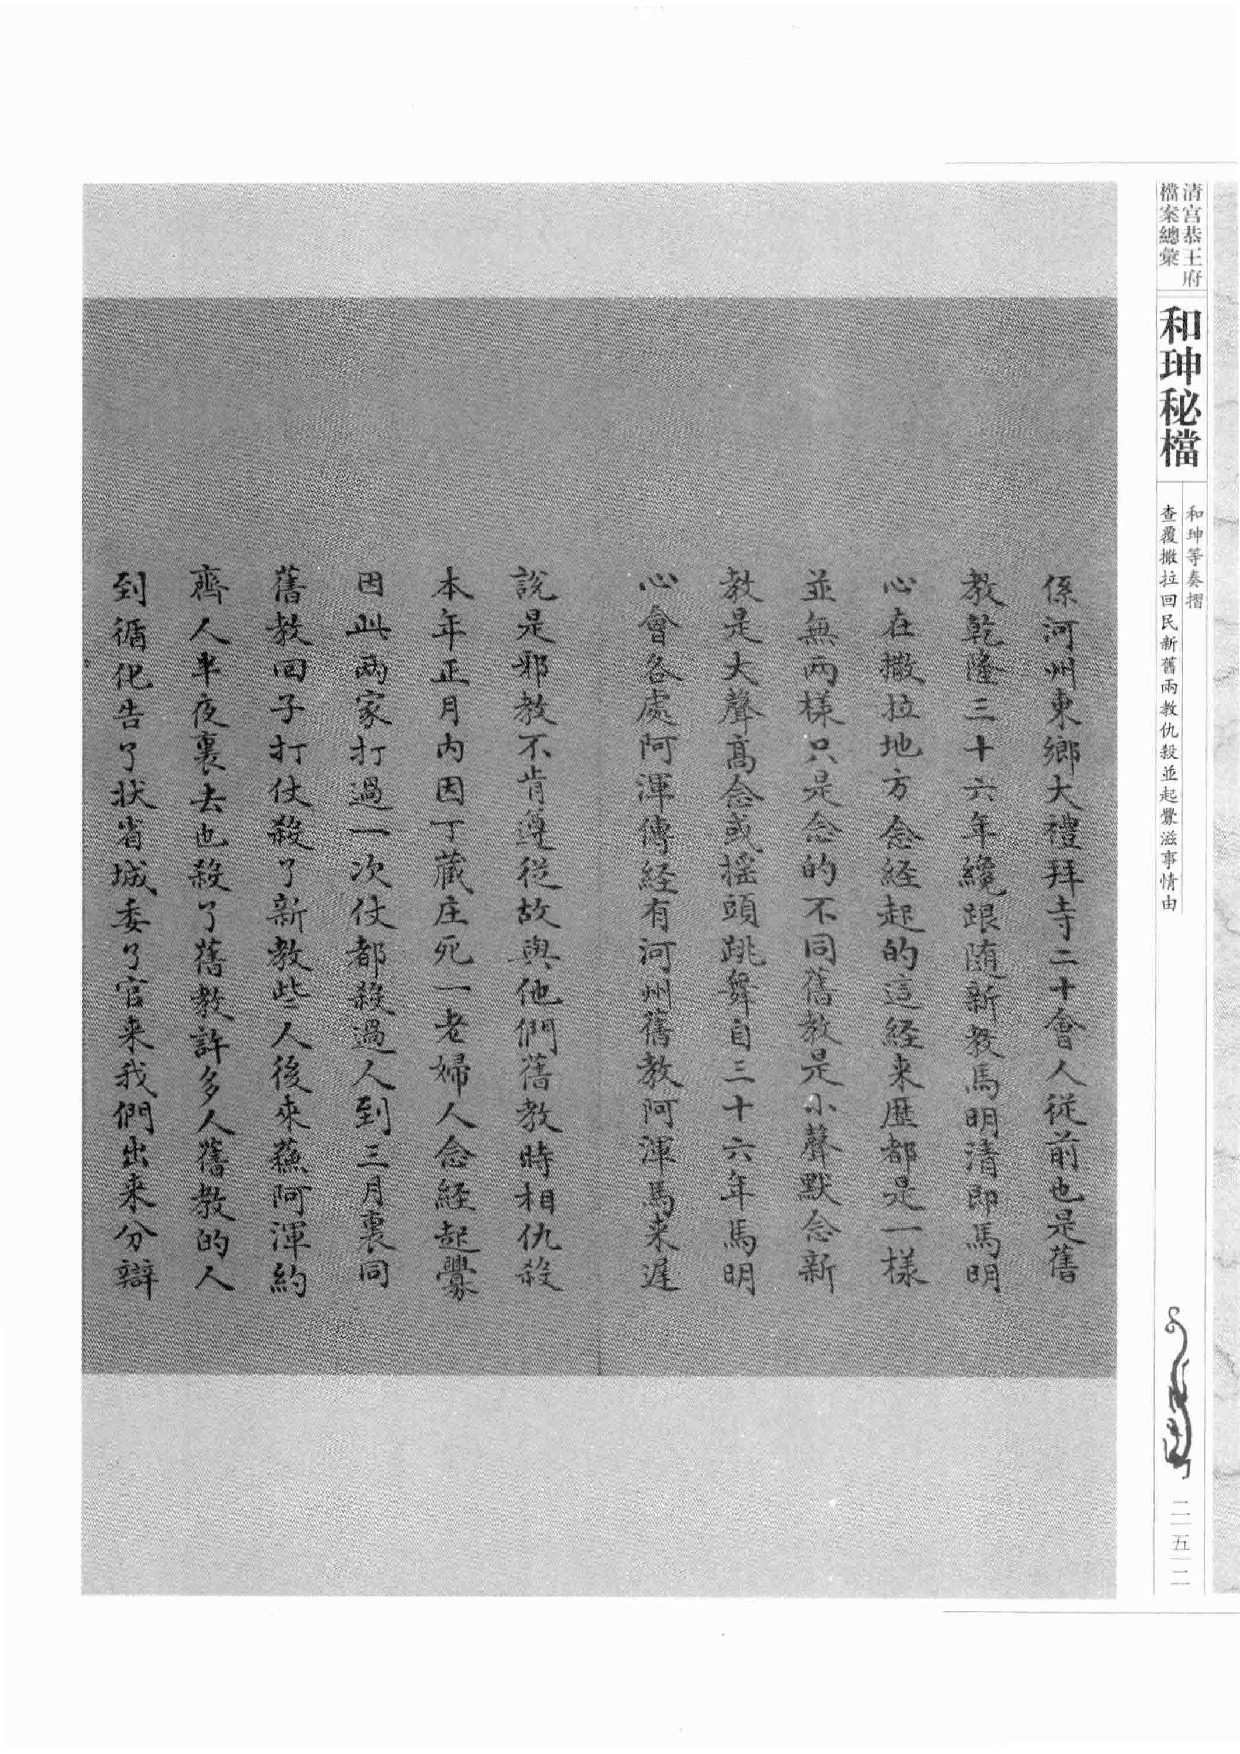 清宮恭王府
檔案總彙
和珅秘檔
和珅等奏摺
查覆撒拉回民新舊兩教仇殺並起釁滋事情由
二五二
係河州東鄉大禮拜寺二十會人從前也是舊
教乾隆三十六年纔跟随新教馬明清即馬明
心在撒拉地方念経起的這経来歷都是一樣
並無両様只是念的不同舊教是小聲默念新
教是大聲高念或摇頭跳舞自三十六年馬明
心會各處阿渾傳経有河州舊教阿渾馬来遲
說是邪教不肯遵從故與他們舊教時相仇殺
本年正月内因丁藏庄死一老婦人念経起釁
因此両家打過一次仗都殺過人到三月裏同
舊教回子打仗殺了新教些人後來蘓阿渾約
齊人半夜裏去也殺了舊教許多人舊教的人
到循化告了状省城委了官来我們出来分辯